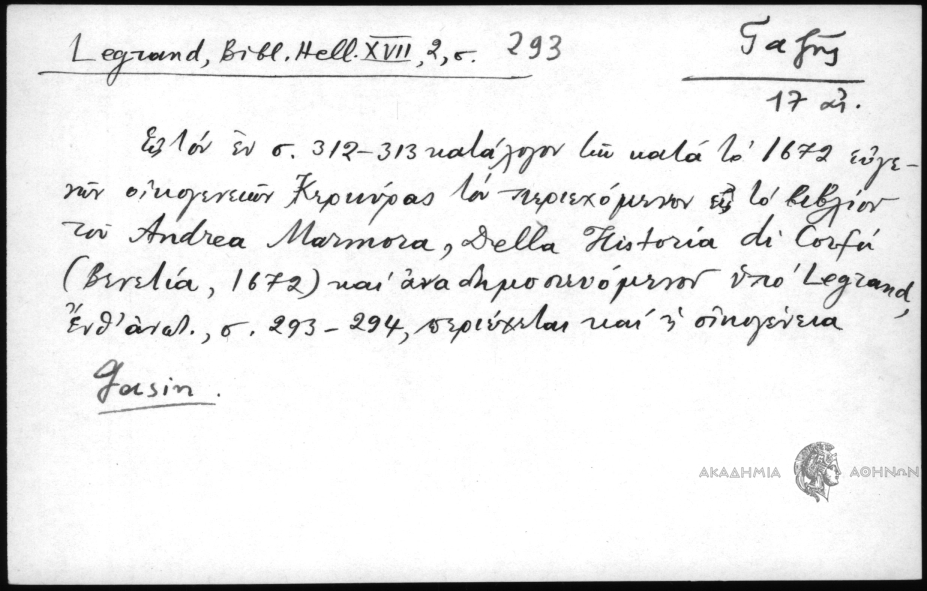 Legrand, Bibl. Hell. XVII, 2, σ. 293
Γαζῆς
17 αἰ.
Εἰς τόν ἐν σ. 312-313 κατάλογον τῶν κατά τό 1672 εὐγε-
νῶν οἰκογενειῶν Κερκύρας τόν περιεχόμενον εἰς τό βιβλίον
τοῦ Andrea Marmora, Della Historia di Corfú
(Βενετία, 1672) καί ἀναδημοσιευόμενον ὑπό Legrand,
ἔνθ' ἀνωτ., σ. 293-294, περιέχεται καί ἡ οἰκογένεια
Gasin.
ΑΚΑΔΗΜΙΑ ΑΘΗΝΩΝ